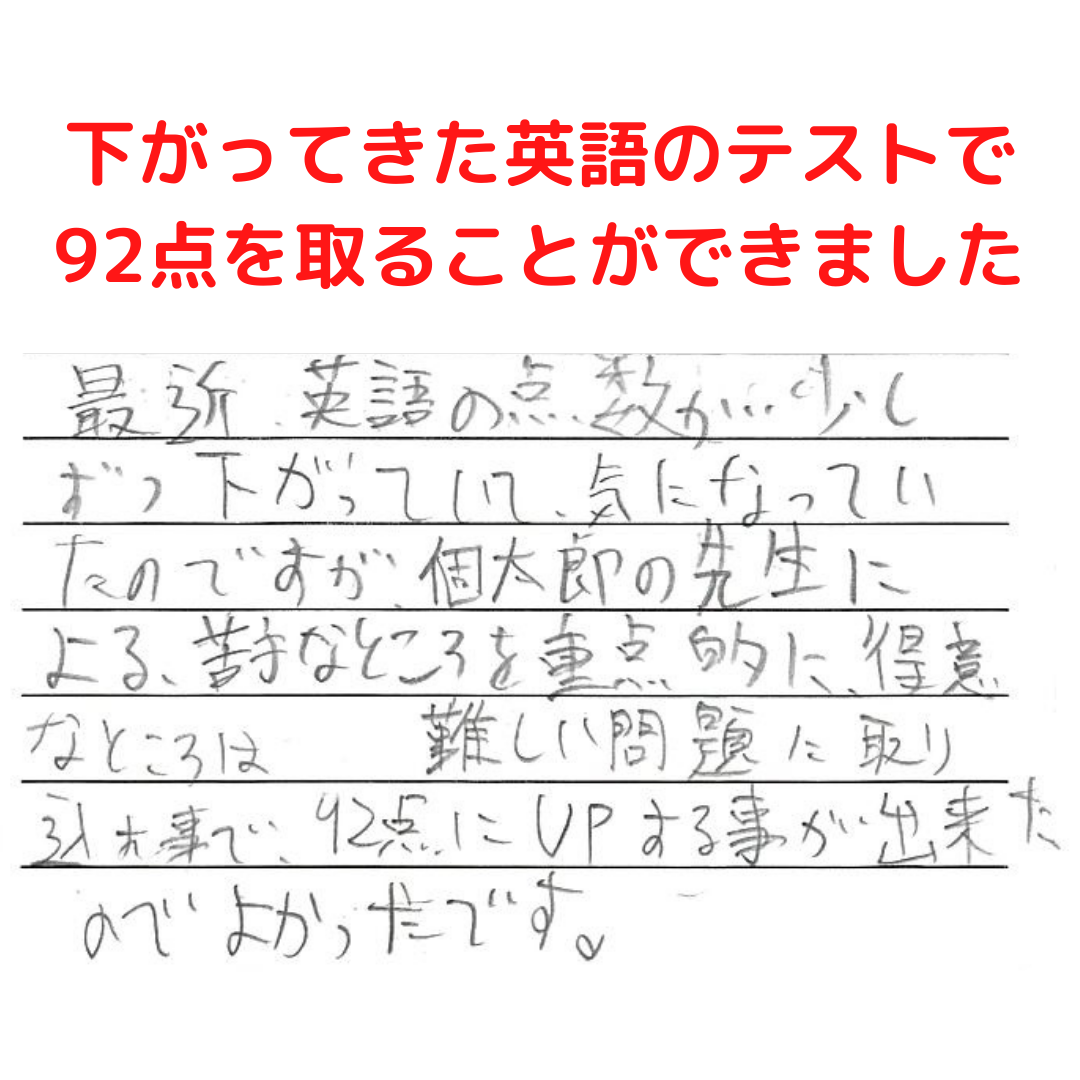 下がってきた英語のテストで
92点を取ることができました
最近、英語の点数が少し
ずつ下がっていて、気になってい
たのですが、個太郎の先生に
よる、苦手なところを重点的に、得意
なところは 難しい問題に取り
大事で、92点にUPする事が出来た
のでよかったです。